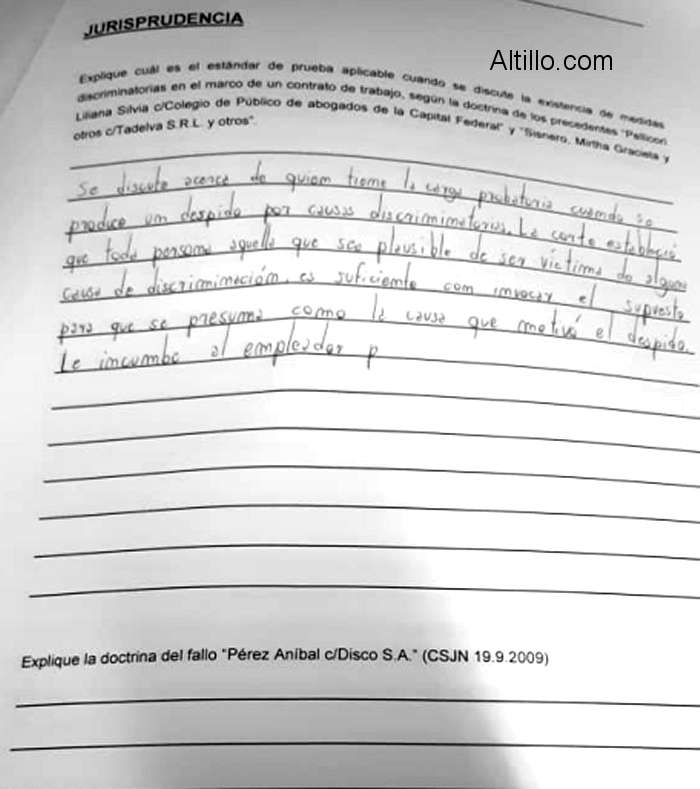 JURISPRUDENCIA
Altillo.com
Explique cuál es el estándar de prueba aplicable cuando se discute la existencia de medidas
discriminatorias en el marco de un contrato de trabajo, según la doctrina de los precedentes "Pellicori
Liliana Silvia c/Colegio de Público de abogados de la Capital Federal" y "Sisnero, Mirtha Graciela y
otros c/Tadelva S.R.L. y otros".
Se discute acerca de quien tiene la carga probatoria cuando se
produce un despido por causas discriminatorias. La corte estableció
que toda persona aquella que sea plausible de ser víctima de alguna
causa de discriminación, es suficiente con invocar el supuesto
para que se presuma como la causa que motivó el despido.
Le incumbe al empleador p
Explique la doctrina del fallo "Pérez Aníbal c/Disco S.A." (CSJN 19.9.2009)